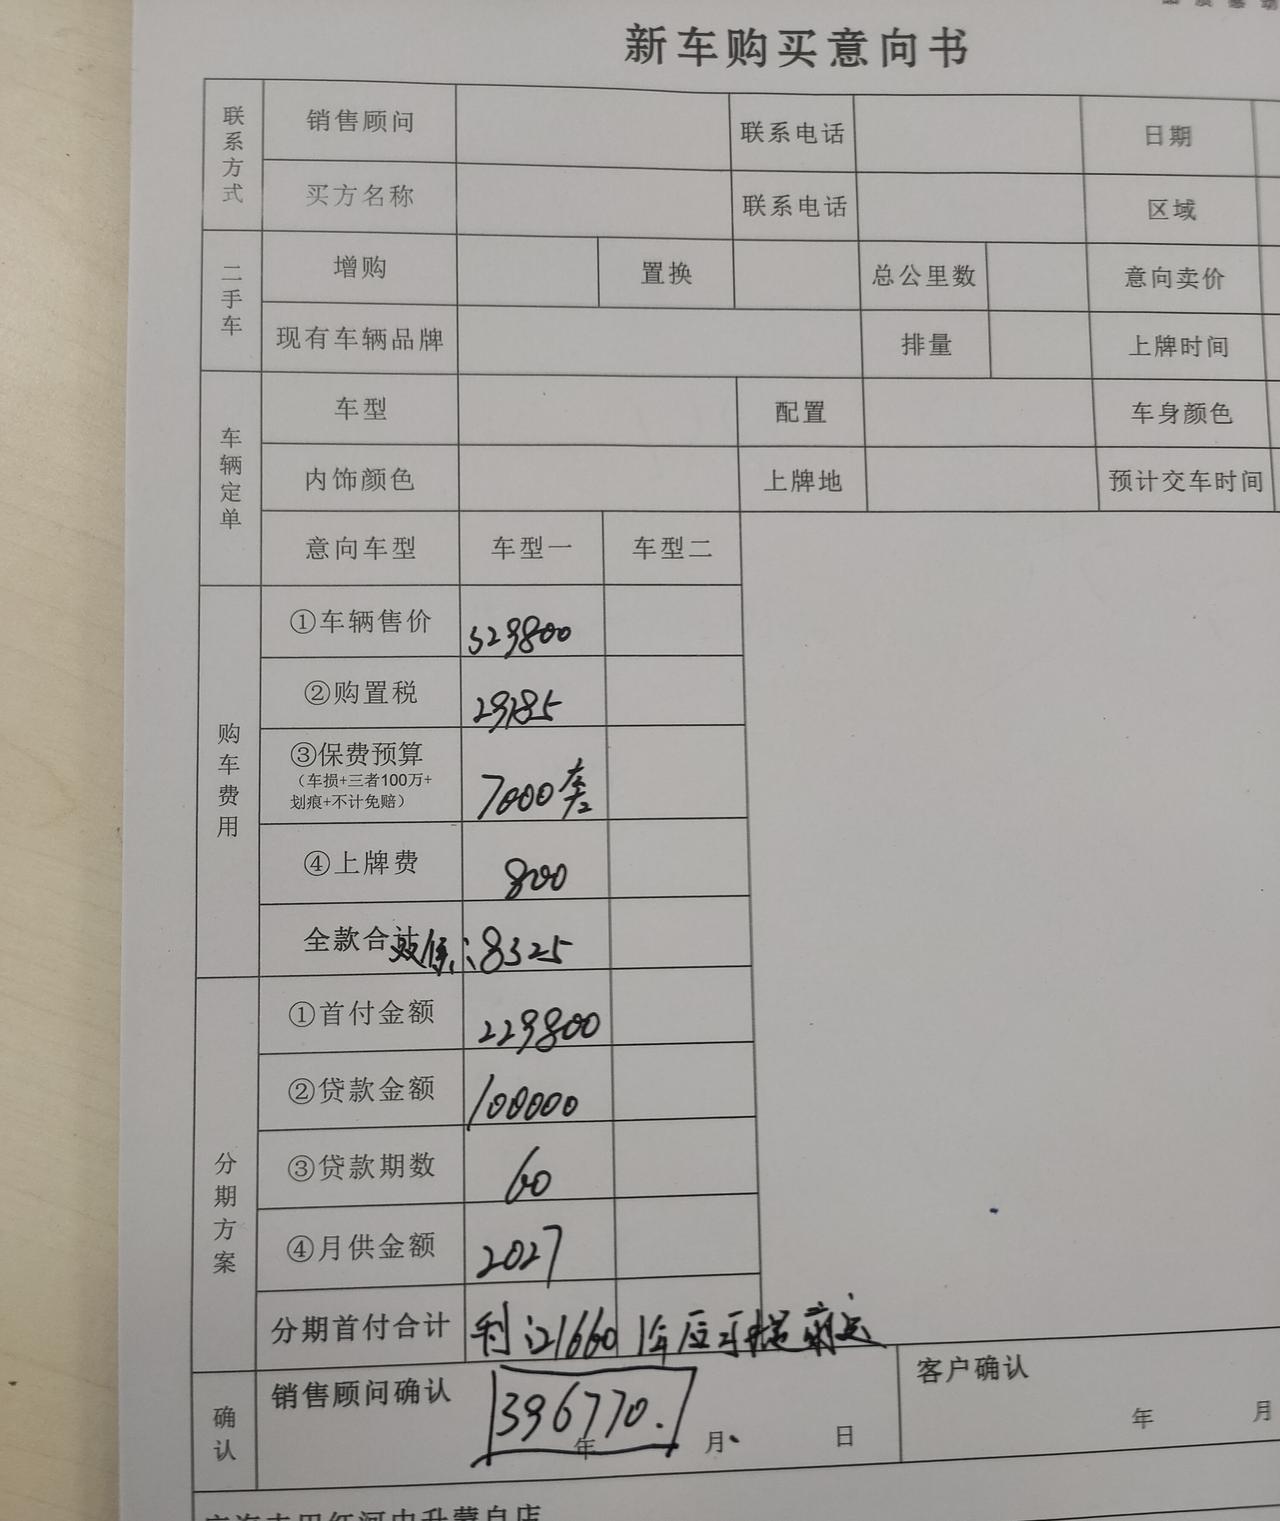 新车购买意向书
联系方式
销售顾问 联系电话 日期
买方名称 联系电话 区域
二手车
增购 置换 总公里数 意向卖价
现有车辆品牌 排量 上牌时间
车辆定单
车型 配置 车身颜色
内饰颜色 上牌地 预计交车时间
意向车型 车型一 车型二
购车费用
①车辆售价 329800
②购置税 29185
③保费预算 7000左右
（车损+三者100万+
划痕+不计免赔）
④上牌费 800
全款合计 双保:8325
分期方案
①首付金额 229800
②贷款金额 100000
③贷款期数 60
④月供金额 2027
分期首付合计 利:21660 1年后可提前还
确认
销售顾问确认 396770.
年 月 日
客户确认
年 月
广汽丰田红河中升蒙自店